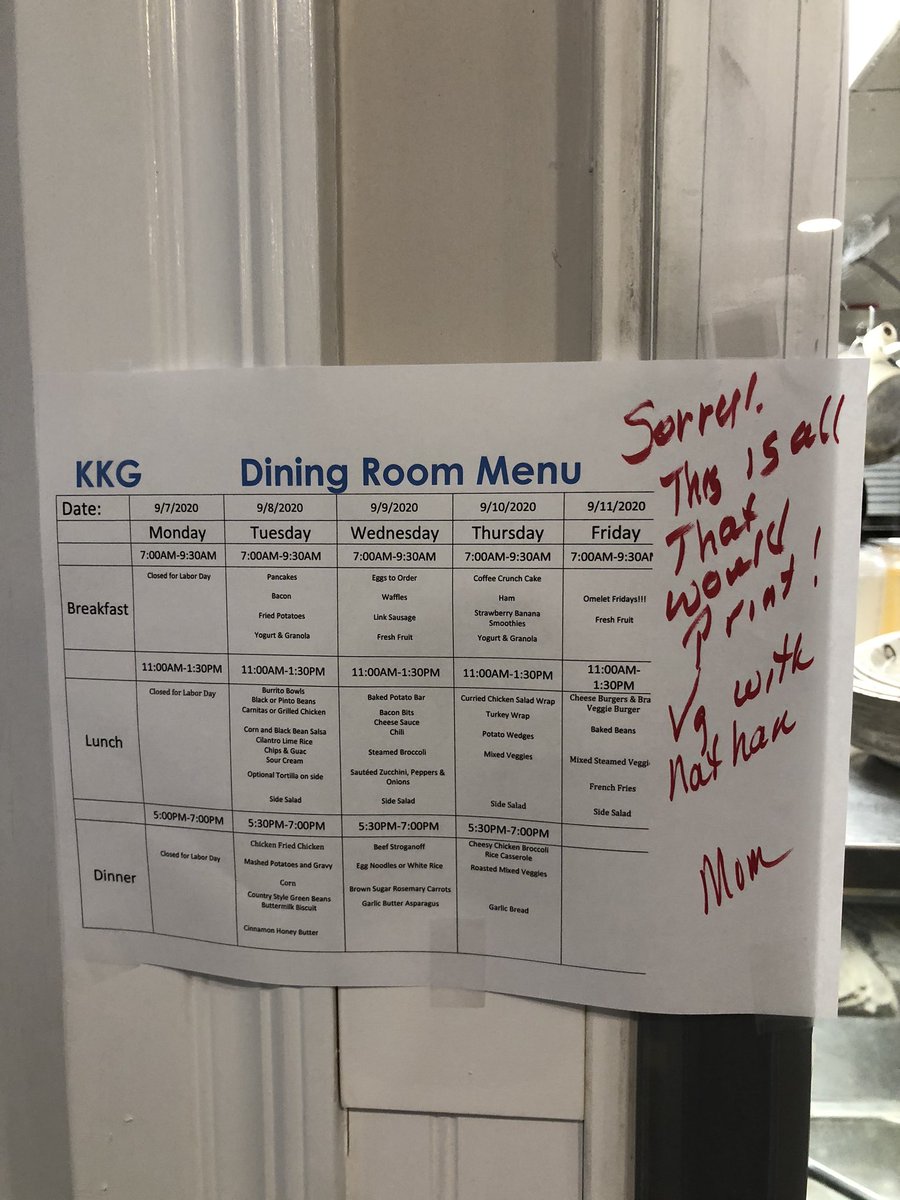 KKG Dining Room Menu
Date: 9/7/2020 9/8/2020 9/9/2020 9/10/2020 9/11/2020
Monday Tuesday Wednesday Thursday Friday
7:00AM-9:30AM 7:00AM-9:30AM 7:00AM-9:30AM 7:00AM-9:30AM 7:00AM-9:30AM
Breakfast
Closed for Labor Day
Pancakes
Bacon
Fried Potatoes
Yogurt & Granola
Eggs to Order
Waffles
Link Sausage
Fresh Fruit
Coffee Crunch Cake
Ham
Strawberry Banana
Smoothies
Yogurt & Granola
Omelet Fridays!!!
Fresh Fruit
11:00AM-1:30PM 11:00AM-1:30PM 11:00AM-1:30PM 11:00AM-1:30PM 11:00AM-
1:30PM
Lunch
Closed for Labor Day
Burrito Bowls
Black or Pinto Beans
Carnitas or Grilled Chicken
Corn and Black Bean Salsa
Cilantro Lime Rice
Chips & Guac
Sour Cream
Optional Tortilla on side
Side Salad
Baked Potato Bar
Bacon Bits
Cheese Sauce
Chili
Steamed Broccoli
Sautéed Zucchini, Peppers &
Onions
Side Salad
Curried Chicken Salad Wrap
Turkey Wrap
Potato Wedges
Mixed Veggies
Side Salad
Cheese Burgers & Bra
Veggie Burger
Baked Beans
Mixed Steamed Veggi
French Fries
Side Salad
5:00PM-7:00PM 5:30PM-7:00PM 5:30PM-7:00PM 5:30PM-7:00PM
Dinner
Closed for Labor Day
Chicken Fried Chicken
Mashed Potatoes and Gravy
Corn
Country Style Green Beans
Buttermilk Biscuit
Cinnamon Honey Butter
Beef Stroganoff
Egg Noodles or White Rice
Brown Sugar Rosemary Carrots
Garlic Butter Asparagus
Cheesy Chicken Broccoli
Rice Casserole
Roasted Mixed Veggies
Garlic Bread
Sorry!
This is all
That
would
print!
with
Nathan
Mom